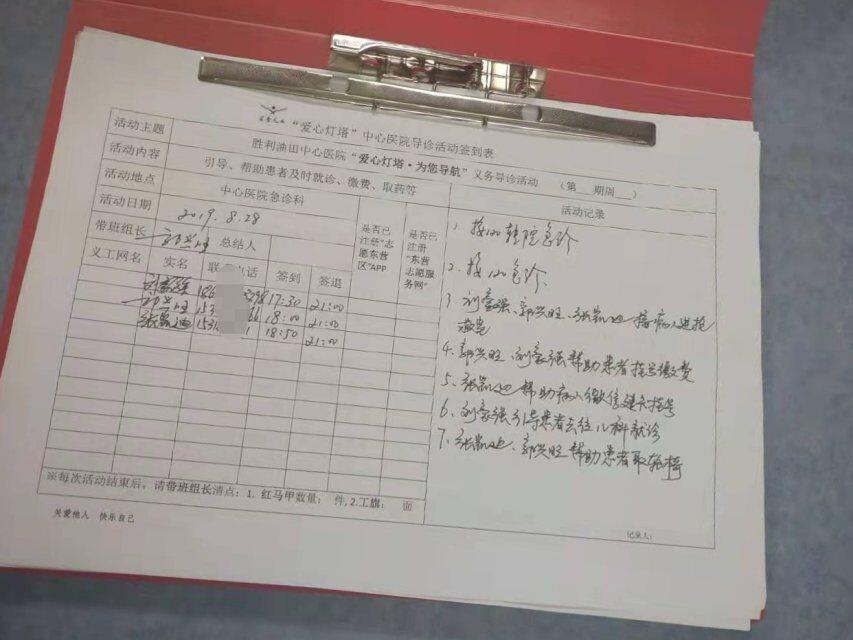 “爱心灯塔”中心医院导诊活动签到表
活动主题 胜利油田中心医院“爱心灯塔·为您导航”义务导诊活动 （第 期周 ）
活动内容 引导、帮助患者及时就诊、缴费、取药等
活动地点 中心医院急诊科
活动日期 2019.8.28
带班组长 郭兴旺 总结人
是否已注册“志愿东营区”APP
是否已注册“东营志愿服务网”
义工网名 实名 联 电话 签到 签退
刘家强 186 398 17:30 21:00
郭兴旺 153 66 18:00 21:00
张凯迪 153 1 18:50 21:00
※每次活动结束后，请带班组长清点：1. 红马甲数量： 件,2.工旗： 面
关爱他人 快乐自己
活动记录
1. 接120转院急诊
2. 接120急诊、
3 刘家强、郭兴旺、张凯迪 接病人进抢
救室
4. 郭兴旺、刘家强帮助患者挂号缴费
5、张凯迪帮助病人微信建卡挂号
6、刘家强引导患者去往儿科就诊
7、张凯迪、郭兴旺帮助患者取轮椅
记录人: